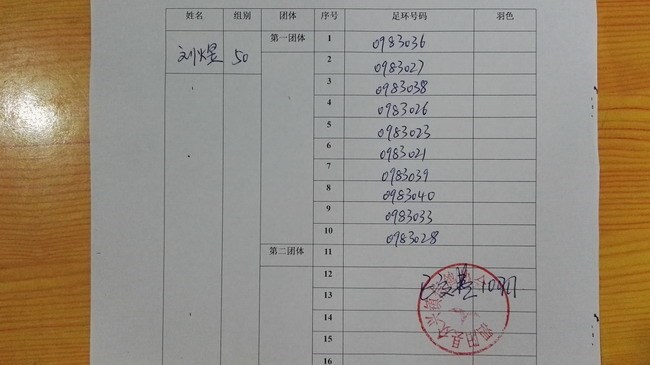 姓名 组别 团体 序号 足环号码 羽色
刘煜 50 第一团体 1 0983036
2 0983027
3 0983038
4 0983026
5 0983023
6 0983021
7 0983039
8 0983040
9 0983033
10 0983028
第二团体 11
12
13
14
15
16